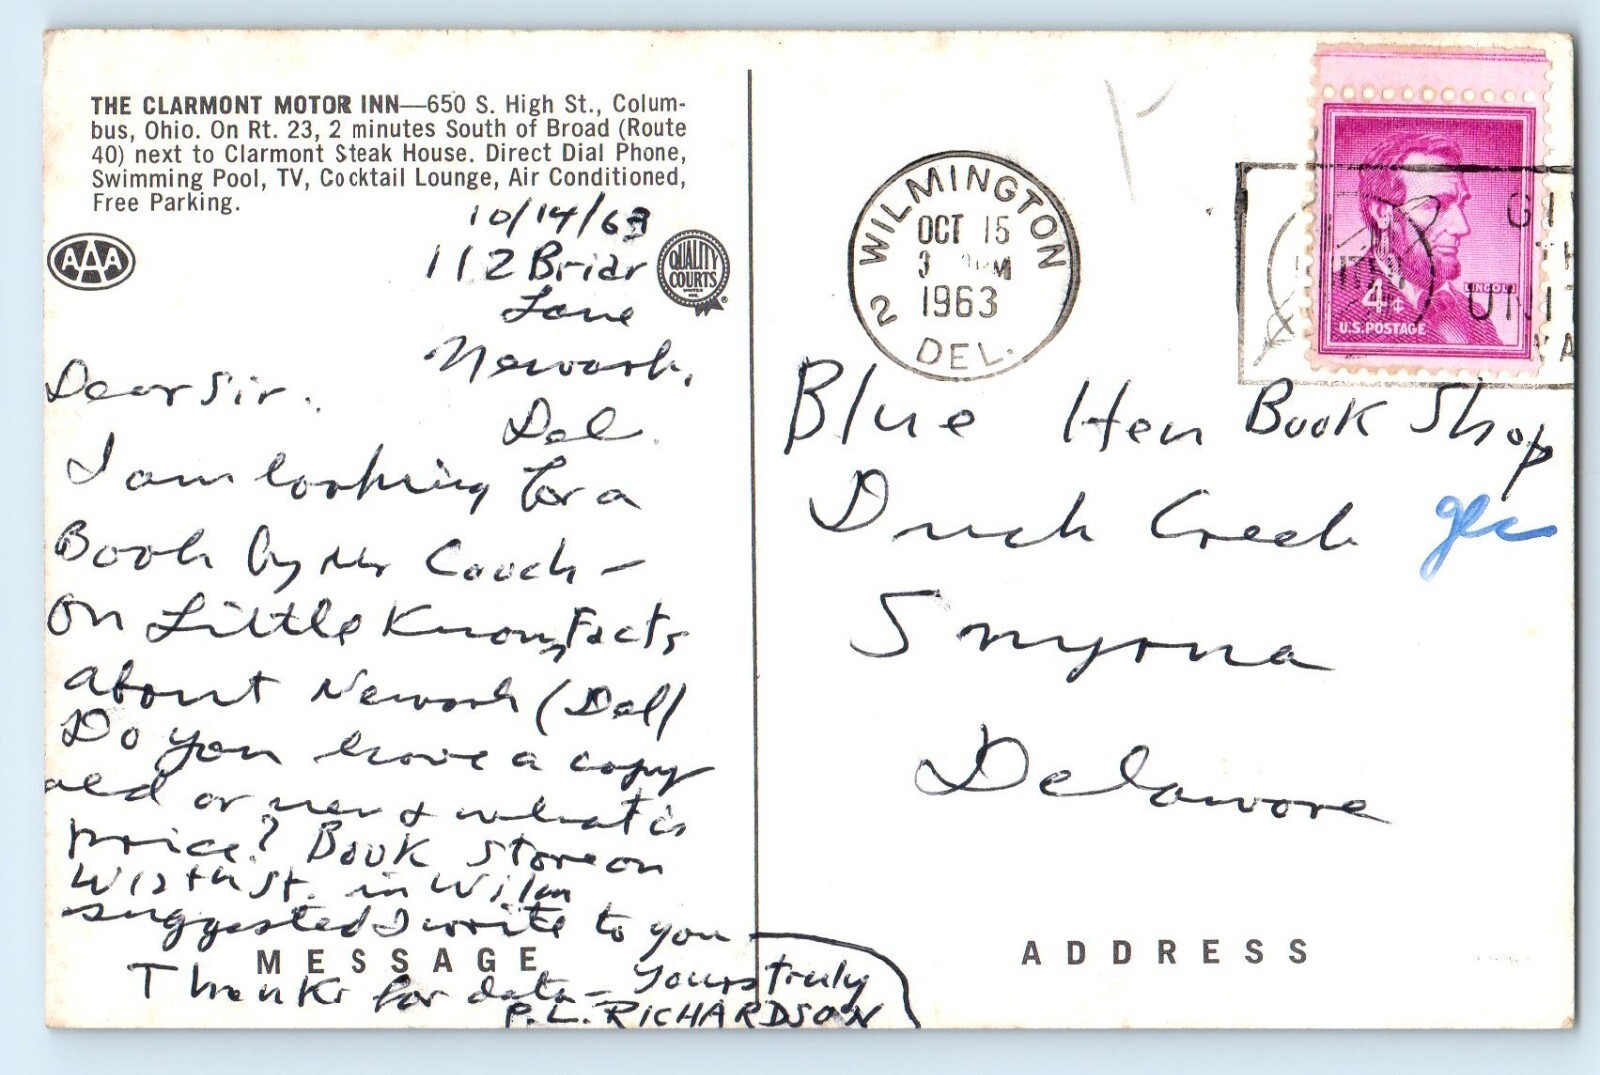 THE CLARMONT MOTOR INN—650 S. High St., Colum-
bus, Ohio. On Rt. 23, 2 minutes South of Broad (Route
40) next to Clarmont Steak House. Direct Dial Phone,
Swimming Pool, TV, Cocktail Lounge, Air Conditioned,
Free Parking.
AAA
QUALITY
COURTS
UNITED
INC.
®
10/14/63
112 Briar
Lane
Newark,
Del.
Dear Sir.
I am looking for a
Book by Mr Cooch -
on Little Known Facts
about Newark (Del)
Do you have a copy
old or new & what is
price? Book store on
W 12th St. in Wilm
suggested I write to you
Thanks for data - Yours truly
P. L. RICHARDSON
MESSAGE
WILMINGTON
OCT 15
3 PM
1963
2 DEL.
GIV
UNIT
WA
LINCOLN
4¢
U.S. POSTAGE
Blue Hen Book Shop
Duck Creek
Smyrna
Delaware
ADDRESS